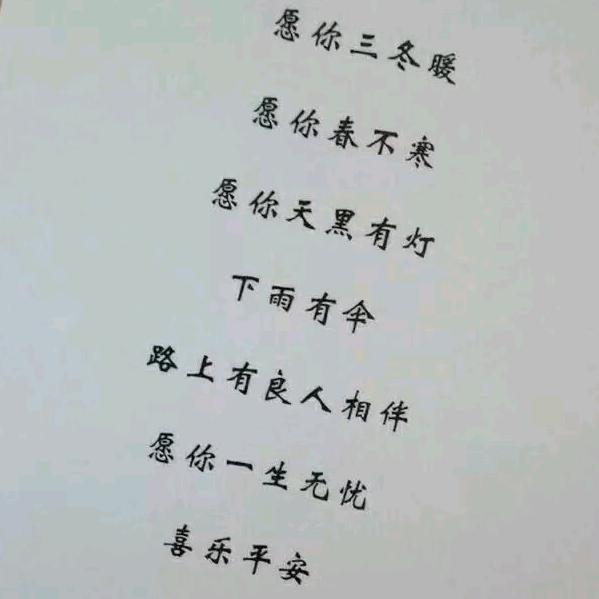 愿你三冬暖
愿你春不寒
愿你天黑有灯
下雨有伞
路上有良人相伴
愿你一生无忧
喜乐平安